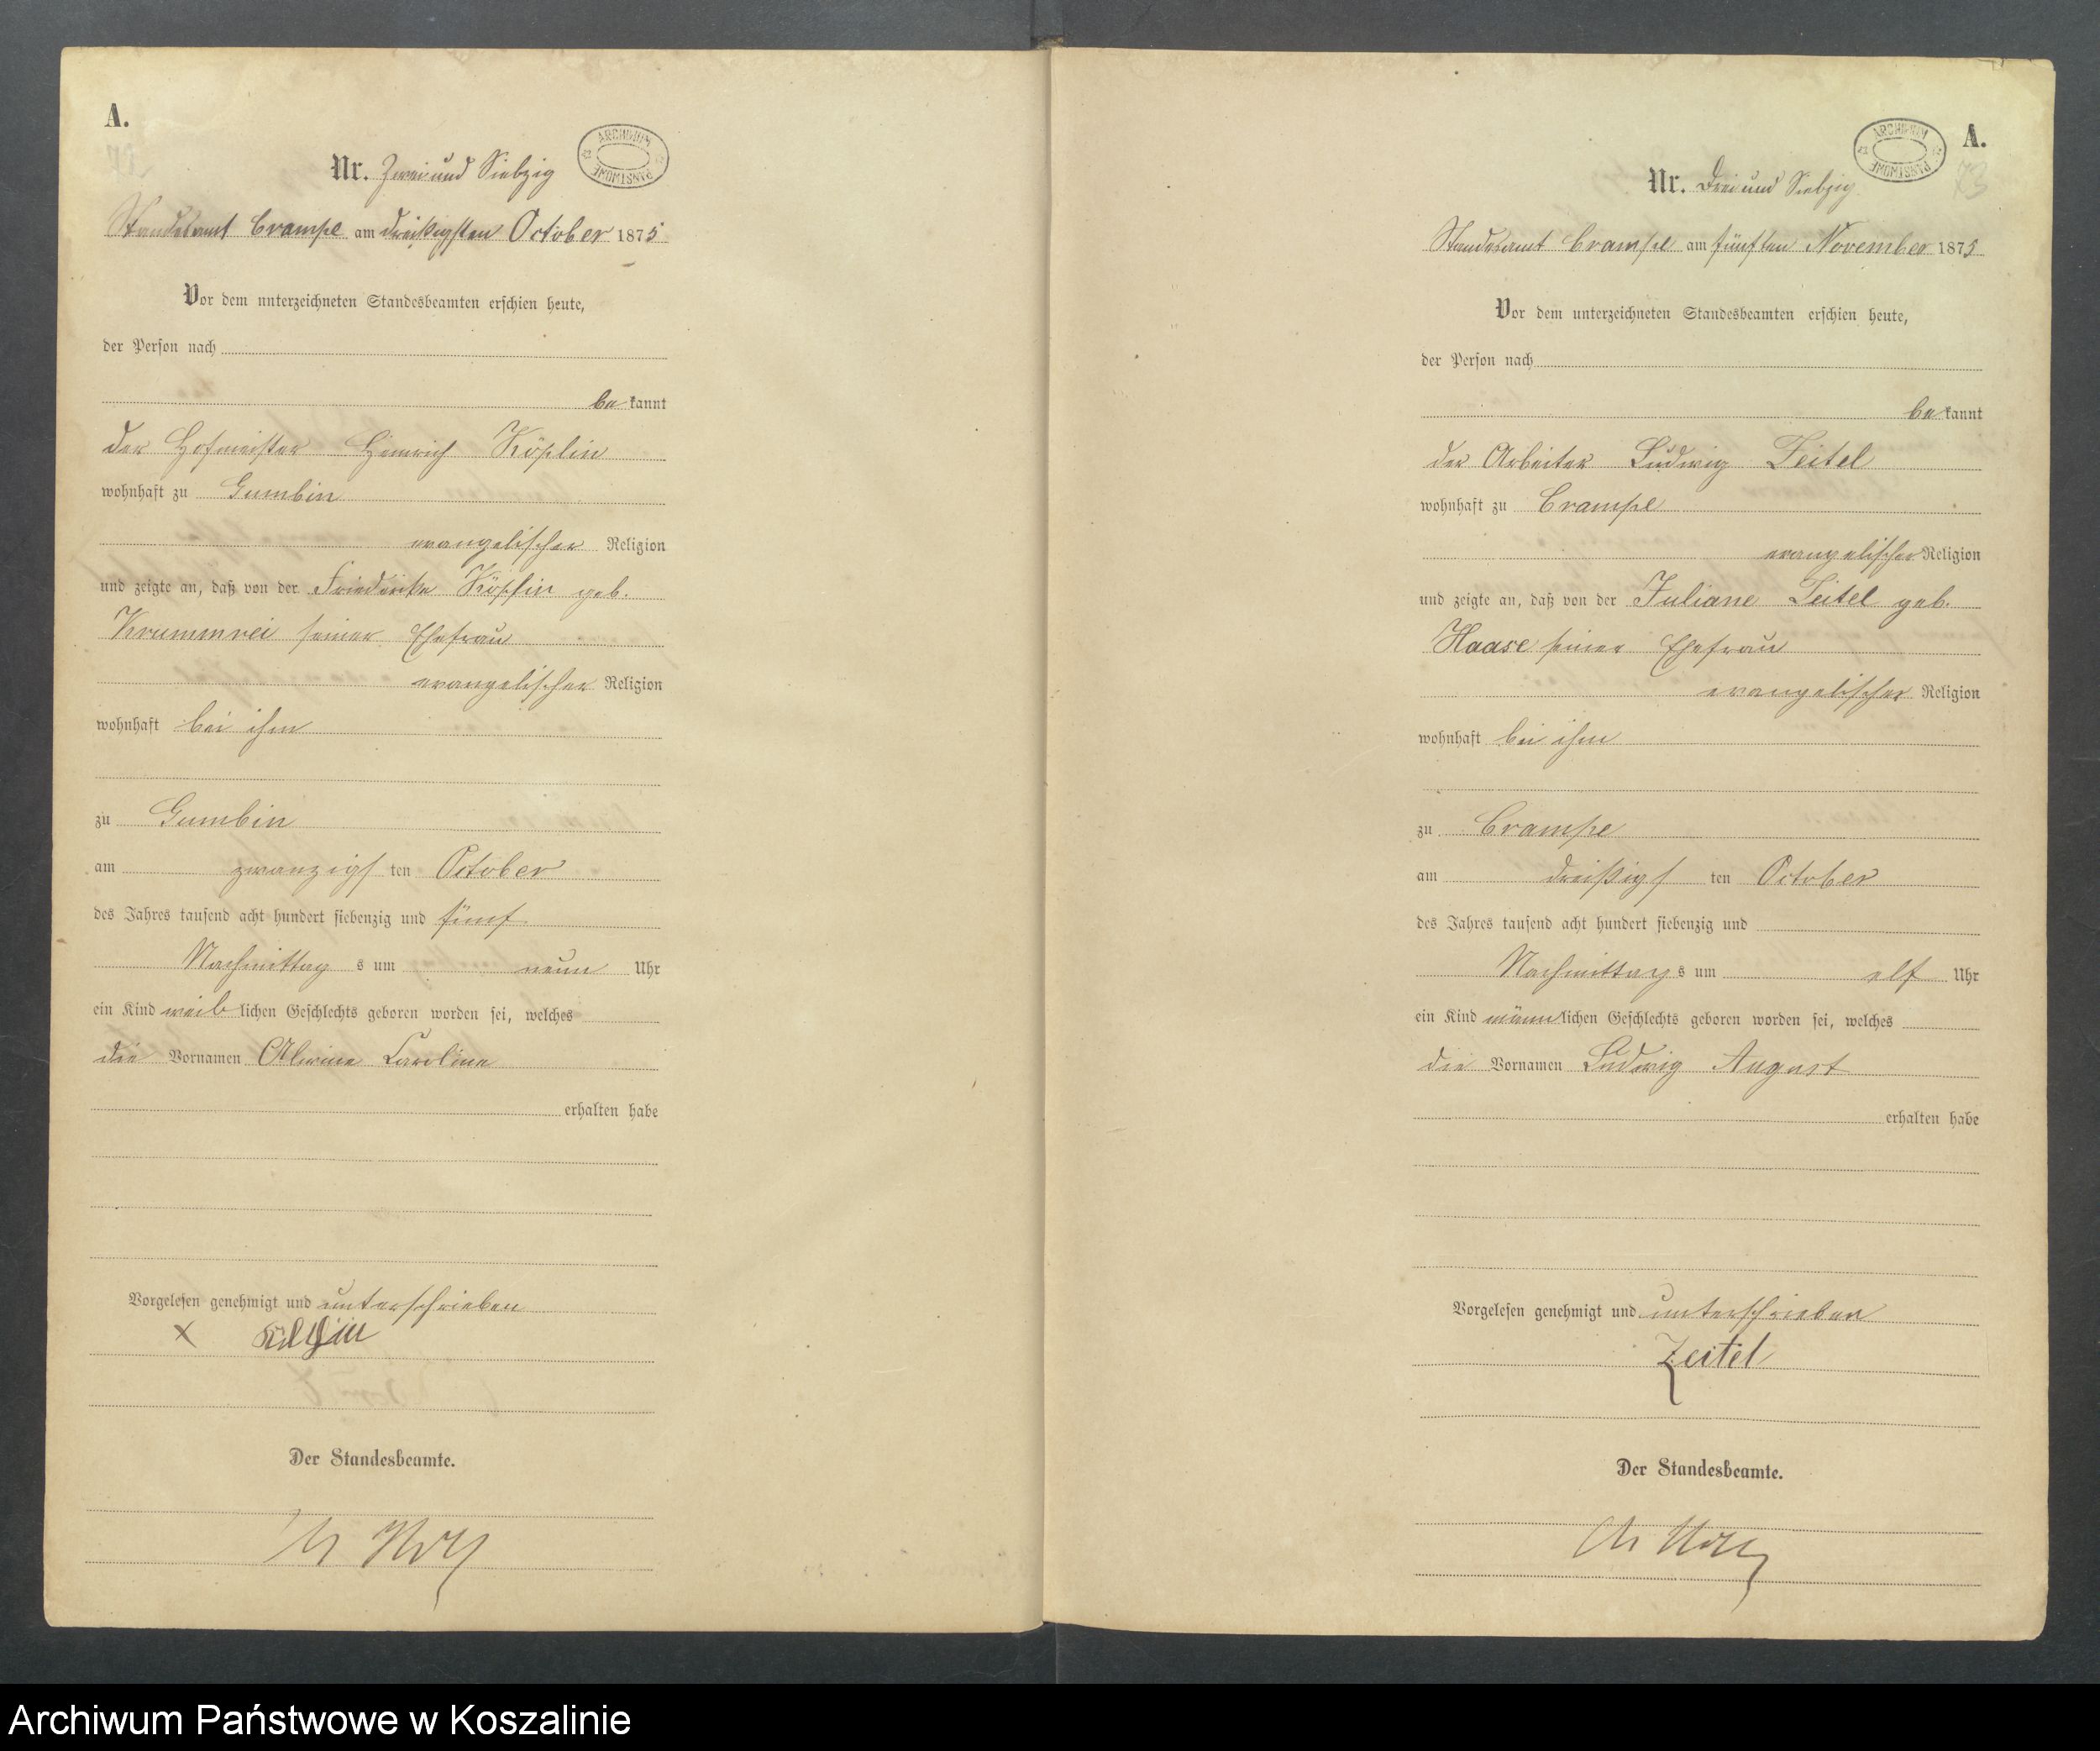 A.
Nr. Zwei und Siebzig
ARCHIWUM PAŃSTWOWE
Standesamt Crampe am dreißigsten October 1875
Vor dem unterzeichneten Standesbeamten erschien heute,
der Person nach
be kannt
der Hofmeister Heinrich Köplin
wohnhaft zu Gumbin
evangelischer Religion
und zeigte an, daß von der Friederike Köplin geb.
Krummrei seiner Ehefrau
evangelischer Religion
wohnhaft bei ihm
zu Gumbin
am zwanzigs ten October
des Jahres tausend acht hundert siebenzig und fünf
Nachmittag s um neun Uhr
ein Kind weib lichen Geschlechts geboren worden sei, welches
die Vornamen Alwine Caroline
erhalten habe
Vorgelesen genehmigt und unterschrieben
x Köplin
Der Standesbeamte.
A.
73
Nr. Drei und Siebzig
ARCHIWUM PAŃSTWOWE
Standesamt Crampe am fünften November 1875
Vor dem unterzeichneten Standesbeamten erschien heute,
der Person nach
be kannt
der Arbeiter Ludwig Zeitel
wohnhaft zu Crampe
evangelischer Religion
und zeigte an, daß von der Juliane Zeitel geb.
Haase seiner Ehefrau
evangelischer Religion
wohnhaft bei ihm
zu Crampe
am dreißigs ten October
des Jahres tausend acht hundert siebenzig und
Nachmittag s um elf Uhr
ein Kind männ lichen Geschlechts geboren worden sei, welches
die Vornamen Ludwig August
erhalten habe
Vorgelesen genehmigt und unterschrieben
Zeitel
Der Standesbeamte.
Archiwum Państwowe w Koszalinie